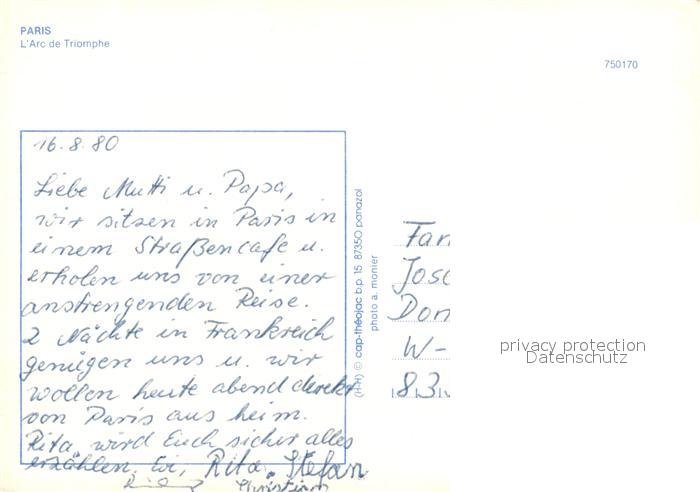 PARIS
L'Arc de Triomphe
750170
16.8.80
Liebe Mutti u. Papa,
wir sitzen in Paris in
einem Straßencafe u.
erholen uns von einer
anstrengenden Reise.
2 Nächte in Frankreich
genügen uns u. wir
wollen heute abend direkt
von Paris aus heim.
Rita wird Euch sicher alles
erzählen. Rita. Stefan
Christian
(H-H) © cap-théojac b.p. 15 87350 panazol
photo a. monier
Fan
Jose
Don
W-
83
privacy protection
Datenschutz